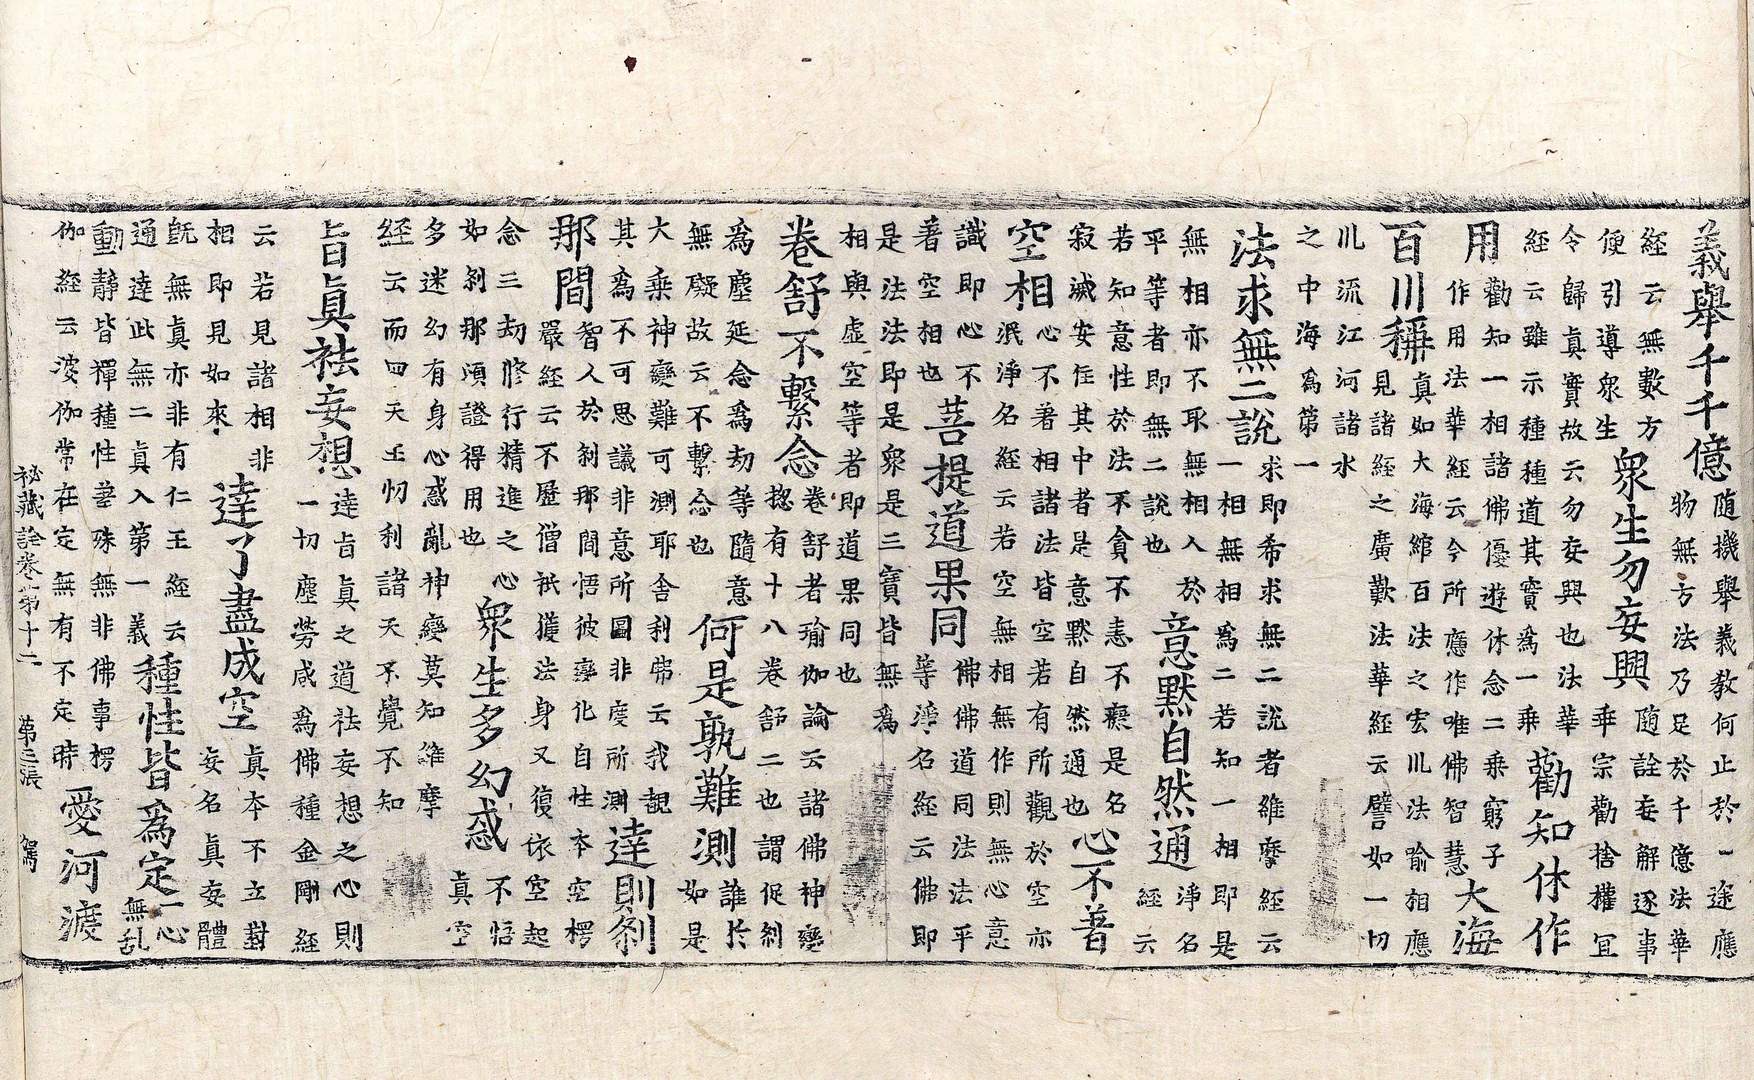 義舉千千億
隨機舉義敎何止於一途應
物無方法乃足於千億法華
經云無數方
便引導衆生
衆生勿妄興
隨詮妄解逐事
乖宗勸捨權冝
令歸眞實故云勿妄興也法華
經云雖示種種道其實爲一乘
勸知休作
用
勸知一相諸佛優遊休念二乗窮子
作用法華經云今所應作唯佛智慧
大海
百川稱
眞如大海綰百法之宏川法喻相應
見諸經之廣歎法華經云譬如一切
川流江河諸水
之中海爲第一
法求無二說
求即希求無二說者維摩經云
一相無相爲二若知一相即是
無相亦不取無相入於
平等者即無二說也
意默自然通
淨名
經云
若知意性於法不貪不恚不癡是名
寂滅安住其中者是意默自然通也
心不著
空相
心不著相諸法皆空若有所觀於空亦
泯淨名經云若空無相無作則無心意
識即心不
著空相也
菩提道果同
佛佛道同法法平
等淨名經云佛即
是法法即是衆是三寶皆無爲
相與虛空等者即道果同也
卷舒不繫念
卷舒者瑜伽論云諸佛神變
捴有十八卷舒二也謂促刹
爲塵延念爲劫等隨意
無礙故云不繫念也
何是孰難測
誰於
如是
大乗神變難可測耶舍利弗云我覩
其爲不可思議非意所圖非度所測
達則刹
那間
智人於刹那間悟彼變化自性本空楞
嚴經云不歷僧祇獲法身又復依空起
念三劫修行精進之心
如刹那頃證得用也
衆生多幻惑
不悟
眞空
多迷幻有身心惑亂神變莫知維摩
經云而四天王忉利諸天不覺不知
旨眞袪妄想
達旨眞之道袪妄想之心則
一切塵勞咸爲佛種金剛經
云若見諸相非
相即見如來
達了盡成空
眞本不立對
妄名眞妄體
旣無眞亦非有仁王經云
通達此無二眞入第一義
種性皆爲定
一心
無乱
動靜皆禪種性差殊無非佛事楞
伽經云淩伽常在定無有不定時
愛河渡
祕藏詮卷第十二 第三張 駕